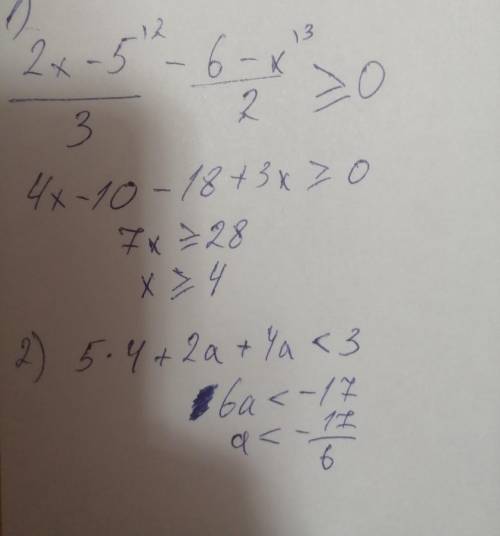 1)
(2x - 5)/3 ^'2 - (6 - x)/2 ^'3 ≥ 0
4x - 10 - 18 + 3x ≥ 0
7x ≥ 28
x ≥ 4
2) 5 · 4 + 2a + 4a < 3
6a < -17
a < - 17/6